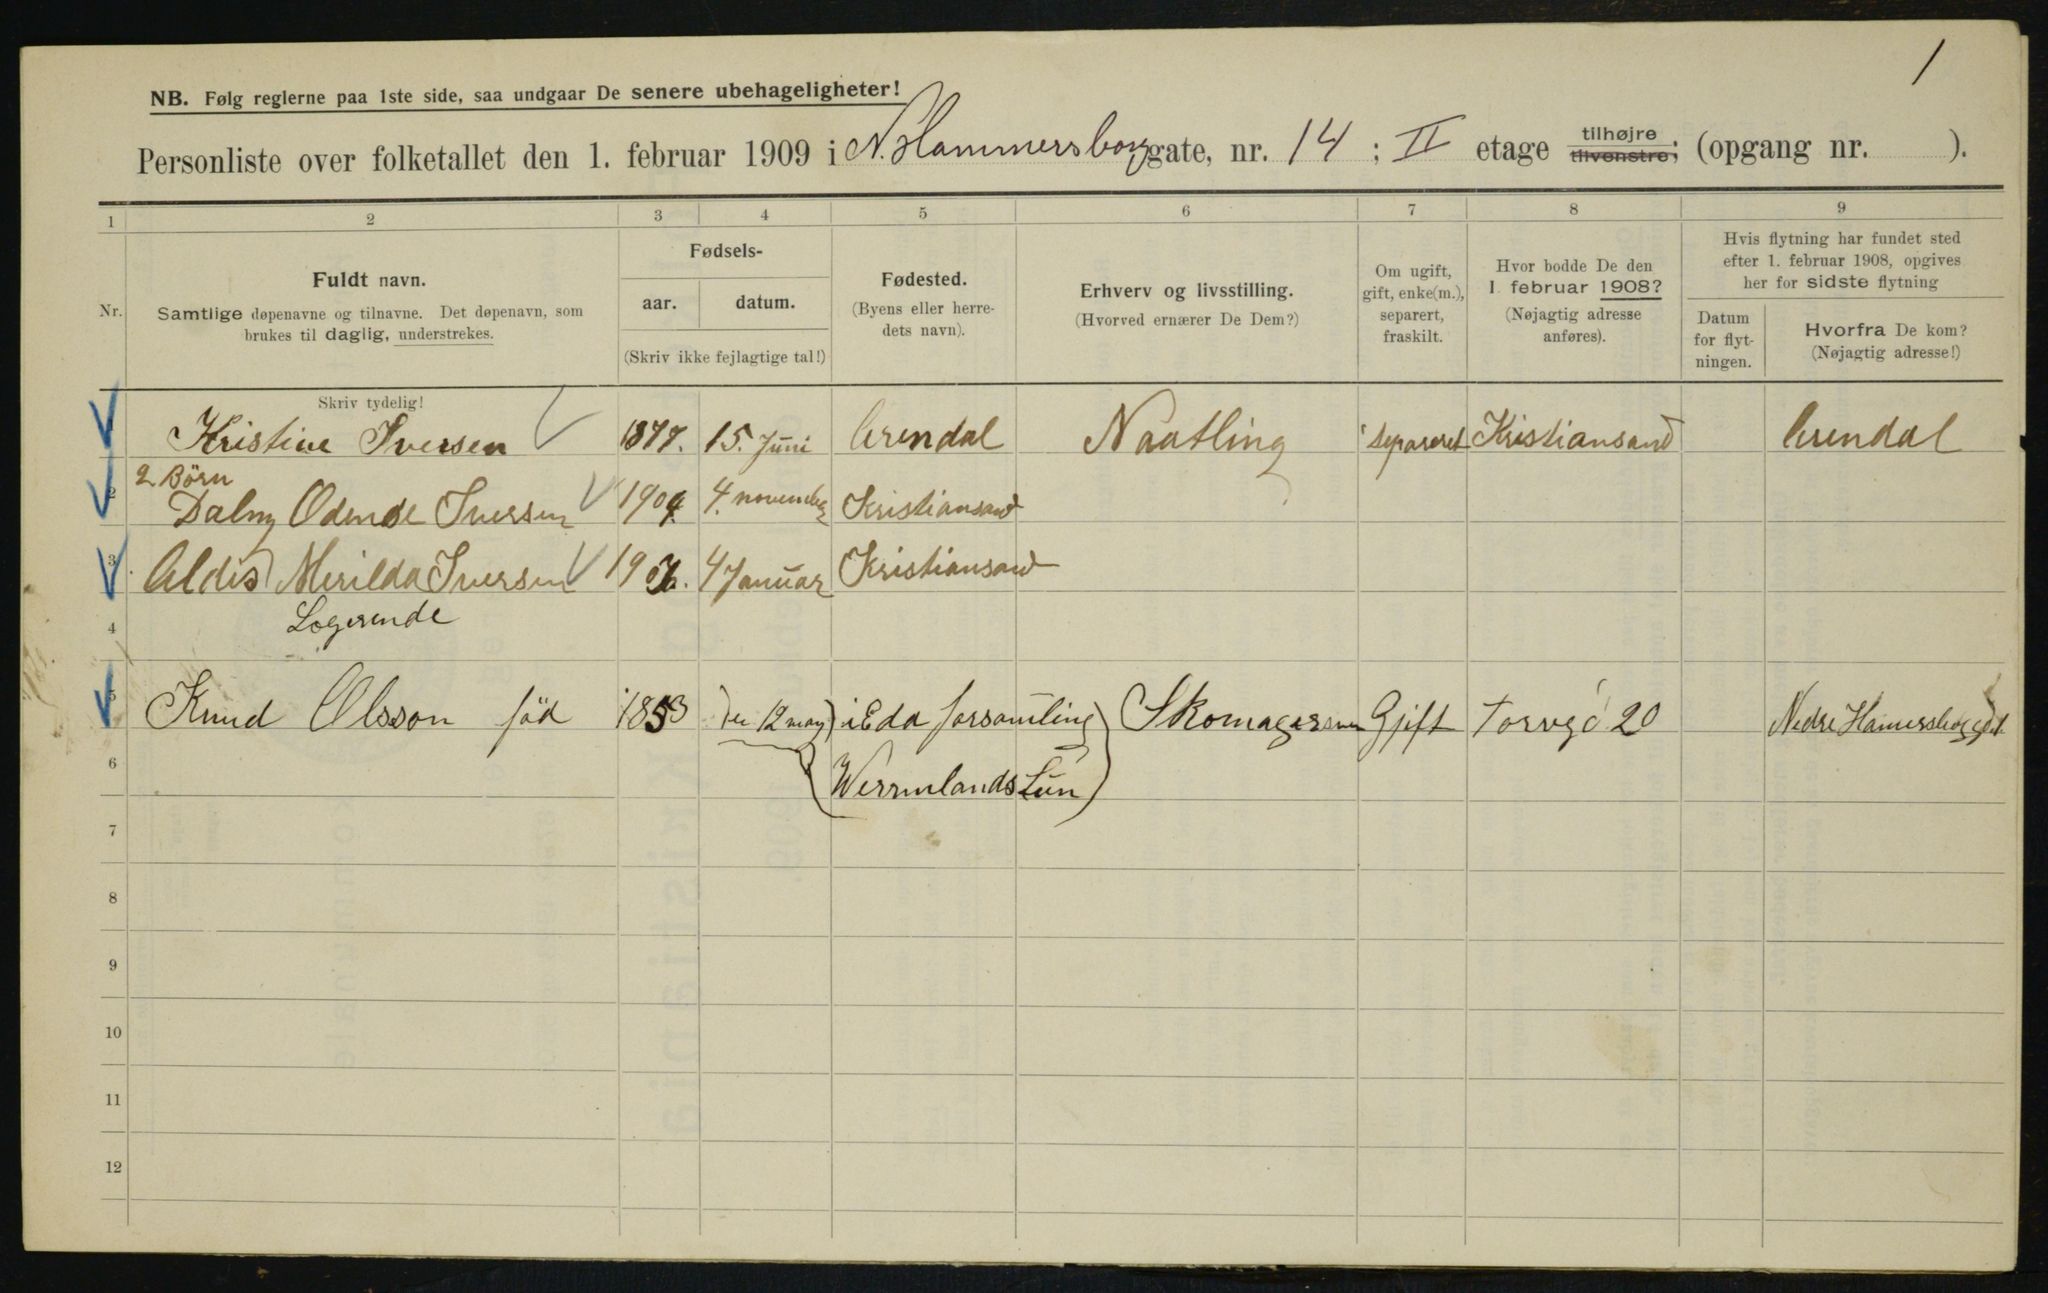 1
NB. Følg reglerne paa 1ste side, saa undgaar De senere ubehageligheter!
Personliste over folketallet den 1. februar 1909 i N. Hammersborggate, nr. 14 ; II etage tilhøjre tilvenstre; (opgang nr. ).
1 2 3 4 5 6 7 8 9
Nr.
Fuldt navn.
Samtlige døpenavne og tilnavne. Det døpenavn, som
brukes til daglig, understrekes.
Fødsels-
aar. datum.
(Skriv ikke fejlagtige tal!)
Fødested.
(Byens eller herre-
dets navn).
Erhverv og livsstilling.
(Hvorved ernærer De Dem?)
Om ugift,
gift, enke(m.),
separert,
fraskilt.
Hvor bodde De den
1. februar 1908?
(Nøjagtig adresse
anføres).
Hvis flytning har fundet sted
efter 1. februar 1908, opgives
her for sidste flytning
Datum
for flyt-
ningen.
Hvorfra De kom?
(Nøjagtig adresse!)
Skriv tydelig!
Kristine Iversen 1877. 15. Juni Arendal separeret Kristiansand Arendal
2 Børn
2 Dalny Iversen 4. november Kristiansand
3 Aldis Merilda Iversen 4 Januar Kristiansand
Logerende
4
5 Knud Olsson föd 1853 12 may i Eda forsamling Skomagersven Gjift Torvgd 20 Nedre
6 (Wermlands Län)
7
8
9
10
11
12